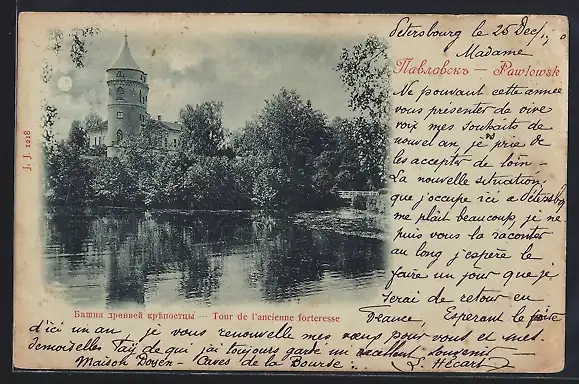 Pétersbourg le 25 Dec/
Madame
Павловскъ — Pawlowsk
Ne pouvant cette année
vous présenter de vive
voix mes souhaits de
nouvel an, je vs prie de
les accepter de loin –
La nouvelle situation,
que j'occupe ici à Pétersbg
me plaît beaucoup, je ne
puis vous la raconter
au long j'espère le
faire un jour que je
serai de retour en
France, Espérant le faire
d'ici un an, je vous renouvelle mes vœux pour vous et mes
demoiselles de qui j'ai toujours gardé un excellent souvenir
Maison Doyen – Caves de la Bourse. L. Hécart
J. J. 1218
Башня древней крѣпостцы — Tour de l'ancienne forteresse